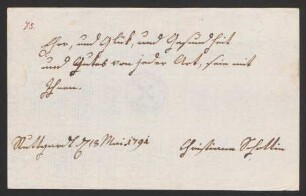 75.
Ehre, und Glük, und Gesundheit
und Gutes von jeder Art, sein mit
Ihnen.
Stuttgard d. 18 Mai. 1791 Christiane Schottin